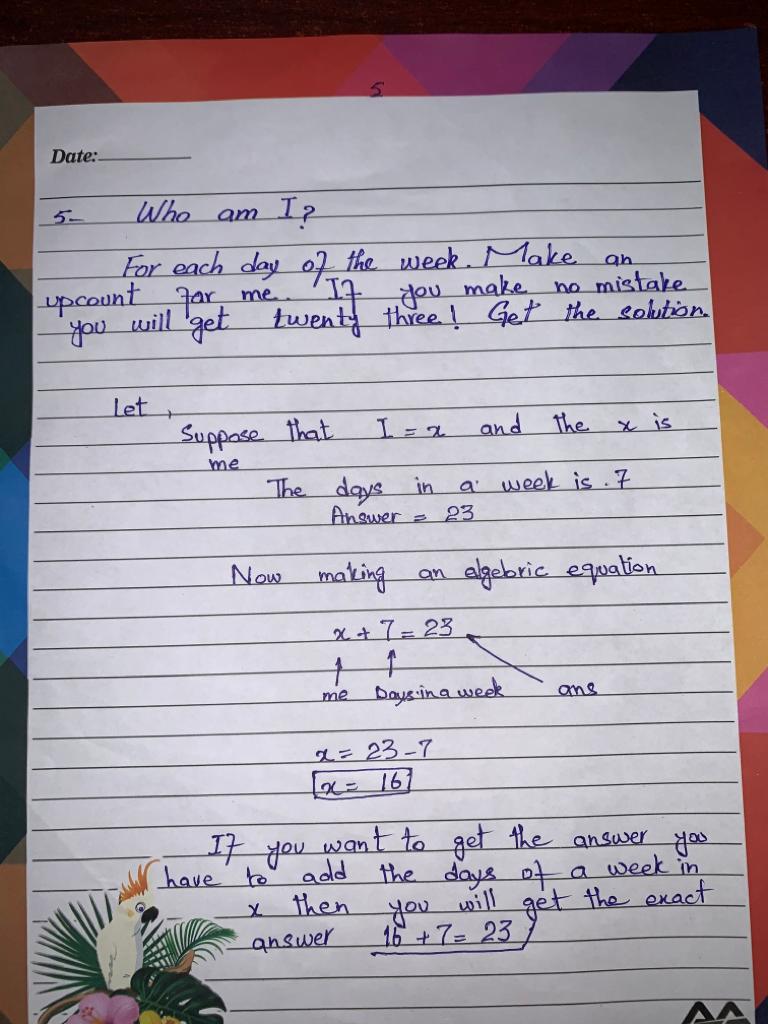 5
Date:
5- Who am I?
For each day of the week. Make an
upcount for me. If you make no mistake
you will get twenty three! Get the solution.
Let,
Suppose that I = x and the x is
me
The days in a week is . 7
Answer = 23
Now making an algebric equation
x + 7 = 23
me Days in a week ans
x = 23 - 7
x = 16
If you want to get the answer you
have to add the days of a week in
x then you will get the exact
answer 16 + 7 = 23